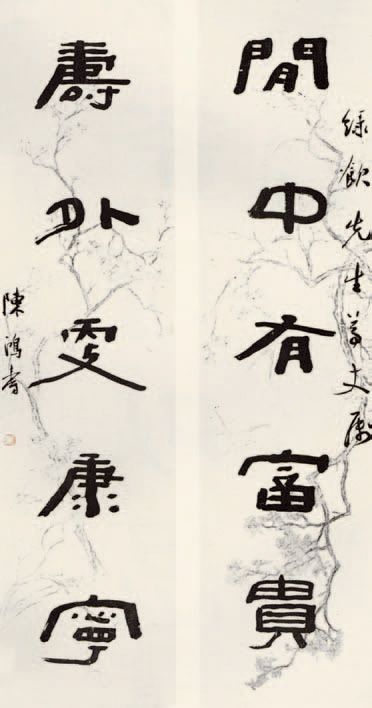 綠飲先生尊丈屬
閒中有富貴
壽外更康寧
陳鴻壽